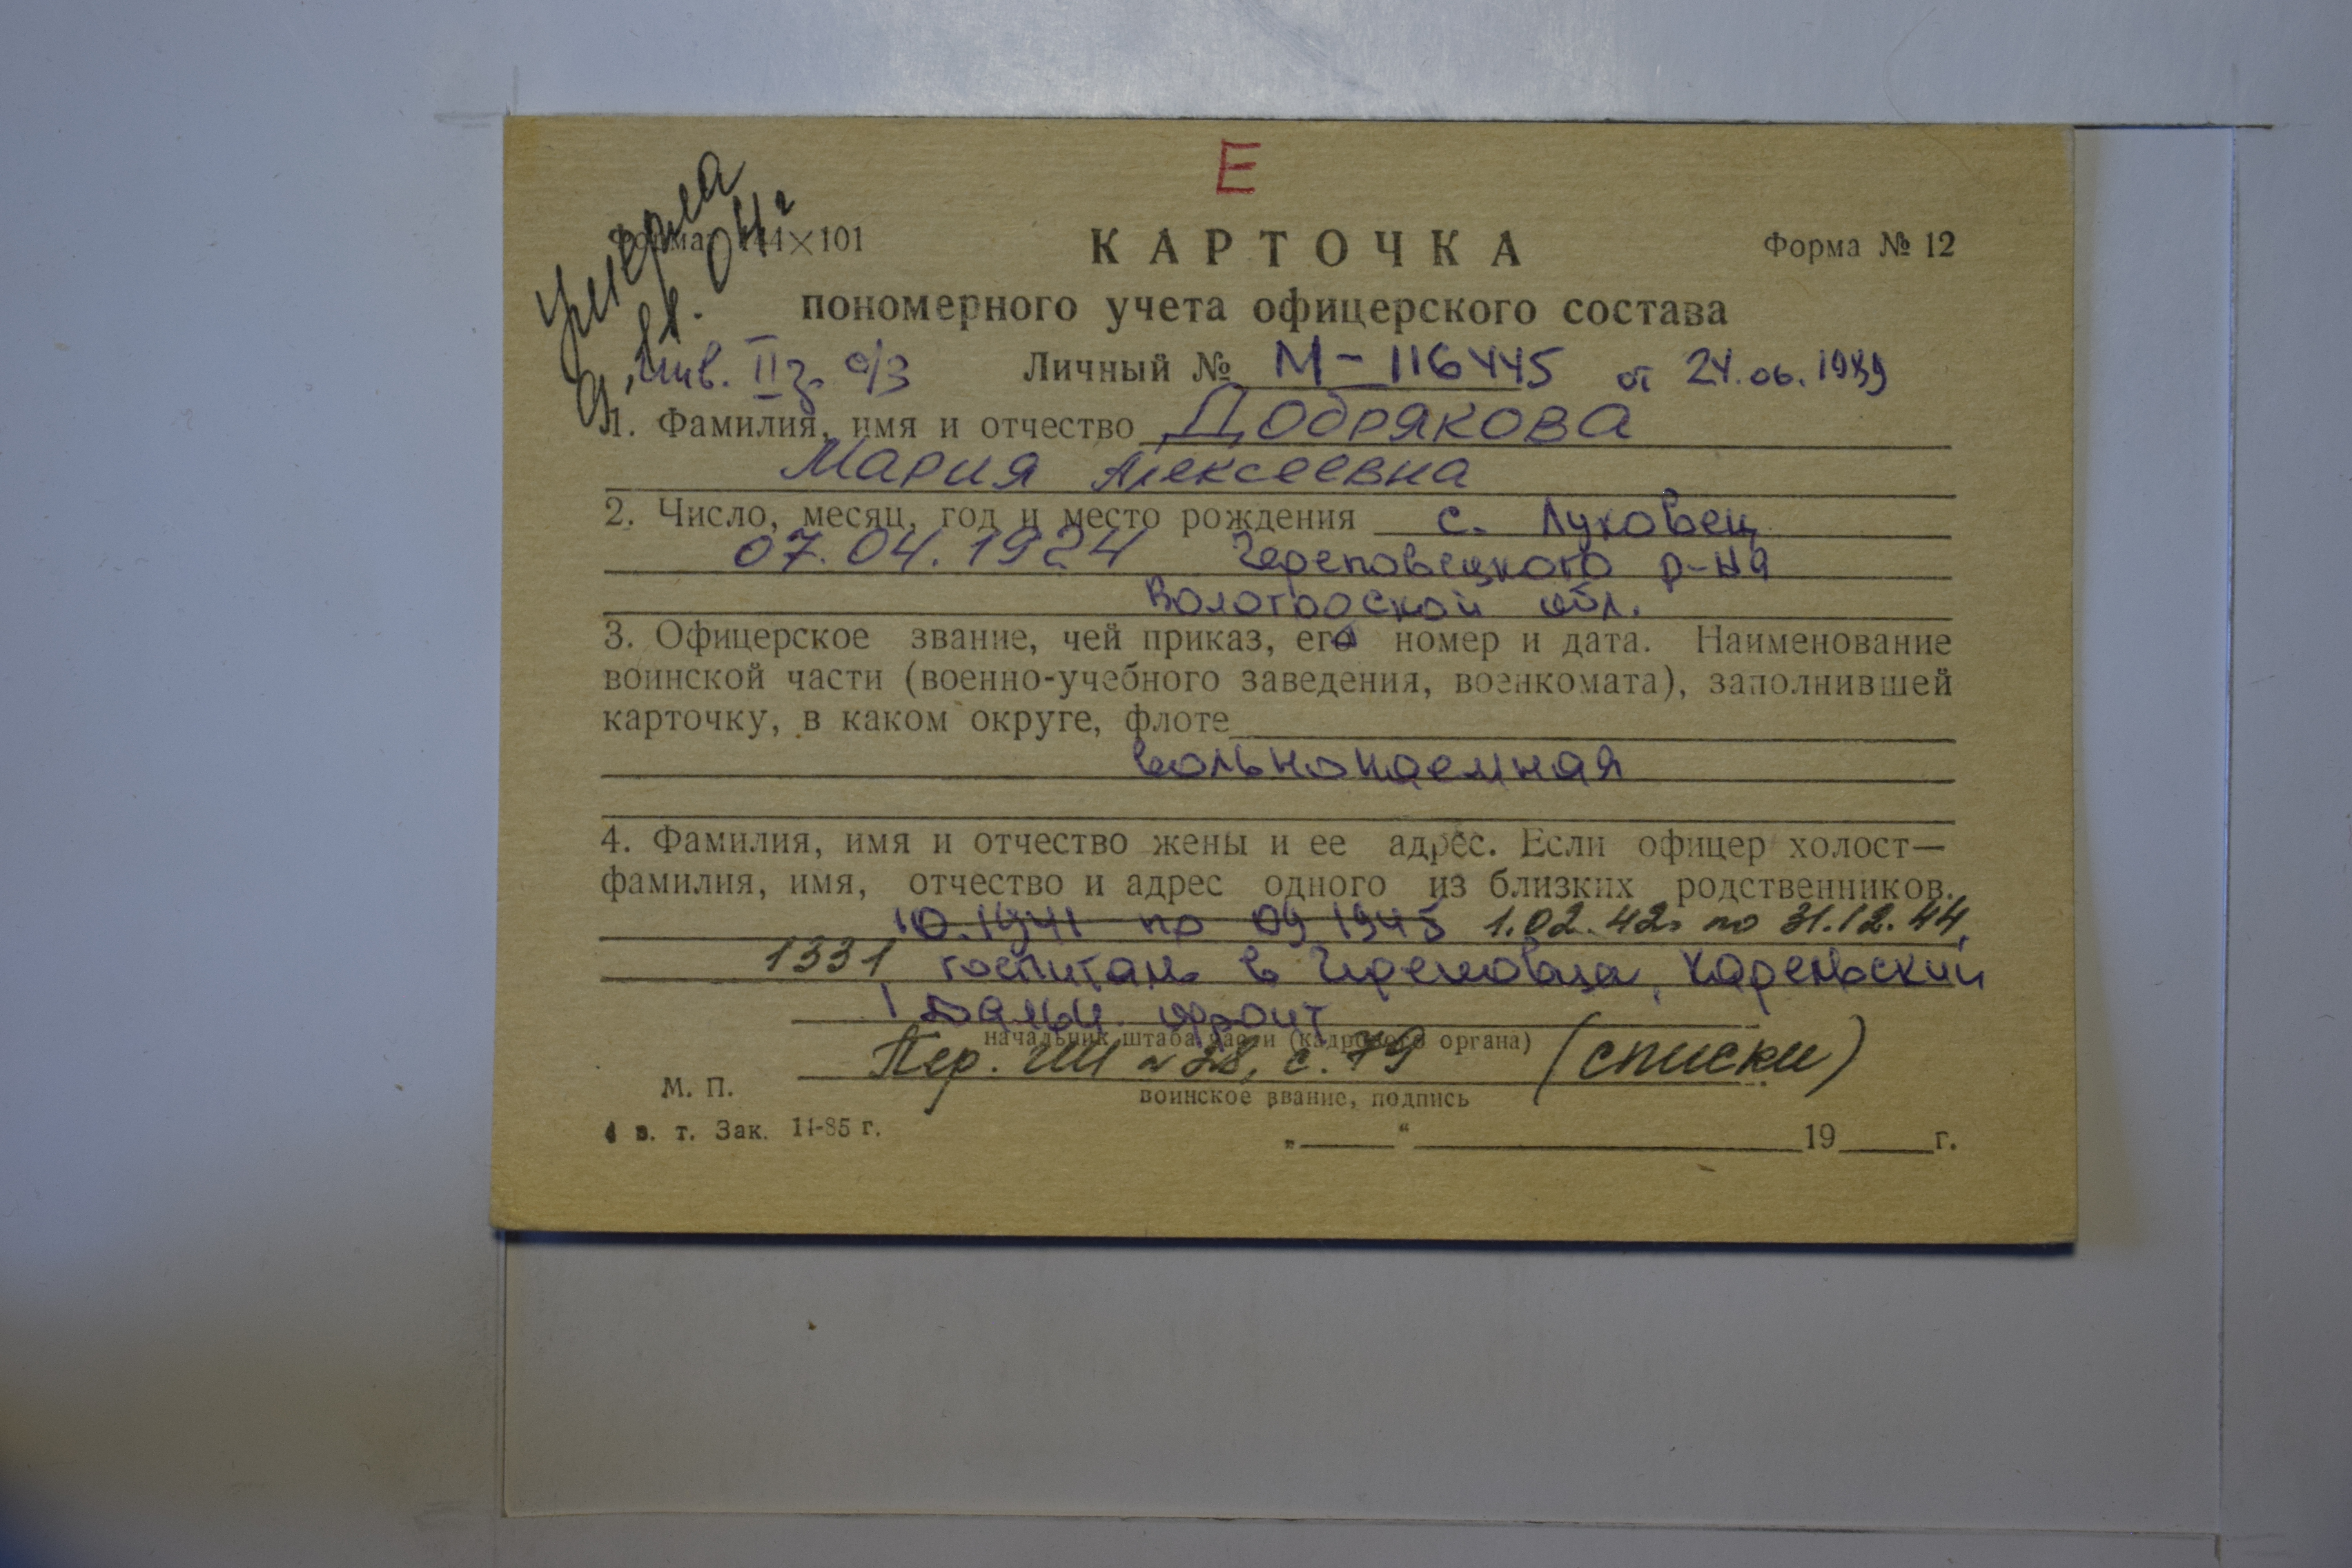 Е
умерла
Формат 144×101
КАРТОЧКА
Форма № 12
пономерного учета офицерского состава
инв. II г. о/з
Личный № М-116445 от 24.06.1989
1. Фамилия, имя и отчество Добрякова
Мария Алексеевна
2. Число, месяц, год и место рождения с. Луковец
07.04.1924 Череповецкого р-на
Вологодской обл.
3. Офицерское звание, чей приказ, его номер и дата. Наименование
воинской части (военно-учебного заведения, военкомата), заполнившей
карточку, в каком округе, флоте
вольнонаемная
4. Фамилия, имя и отчество жены и ее адрес. Если офицер холост—
фамилия, имя, отчество и адрес одного из близких родственников.
10.1941 по 09 1945 1.02.42г по 31.12.44,
1331 госпиталь в Череповца, Карельский
фронт
начальник штаба части (кадрового органа)
Пер. ГШ № 28, с. 79 (списки)
М. П.
воинское звание, подпись
в. т. Зак. 14-85 г.
„ “ 19 г.